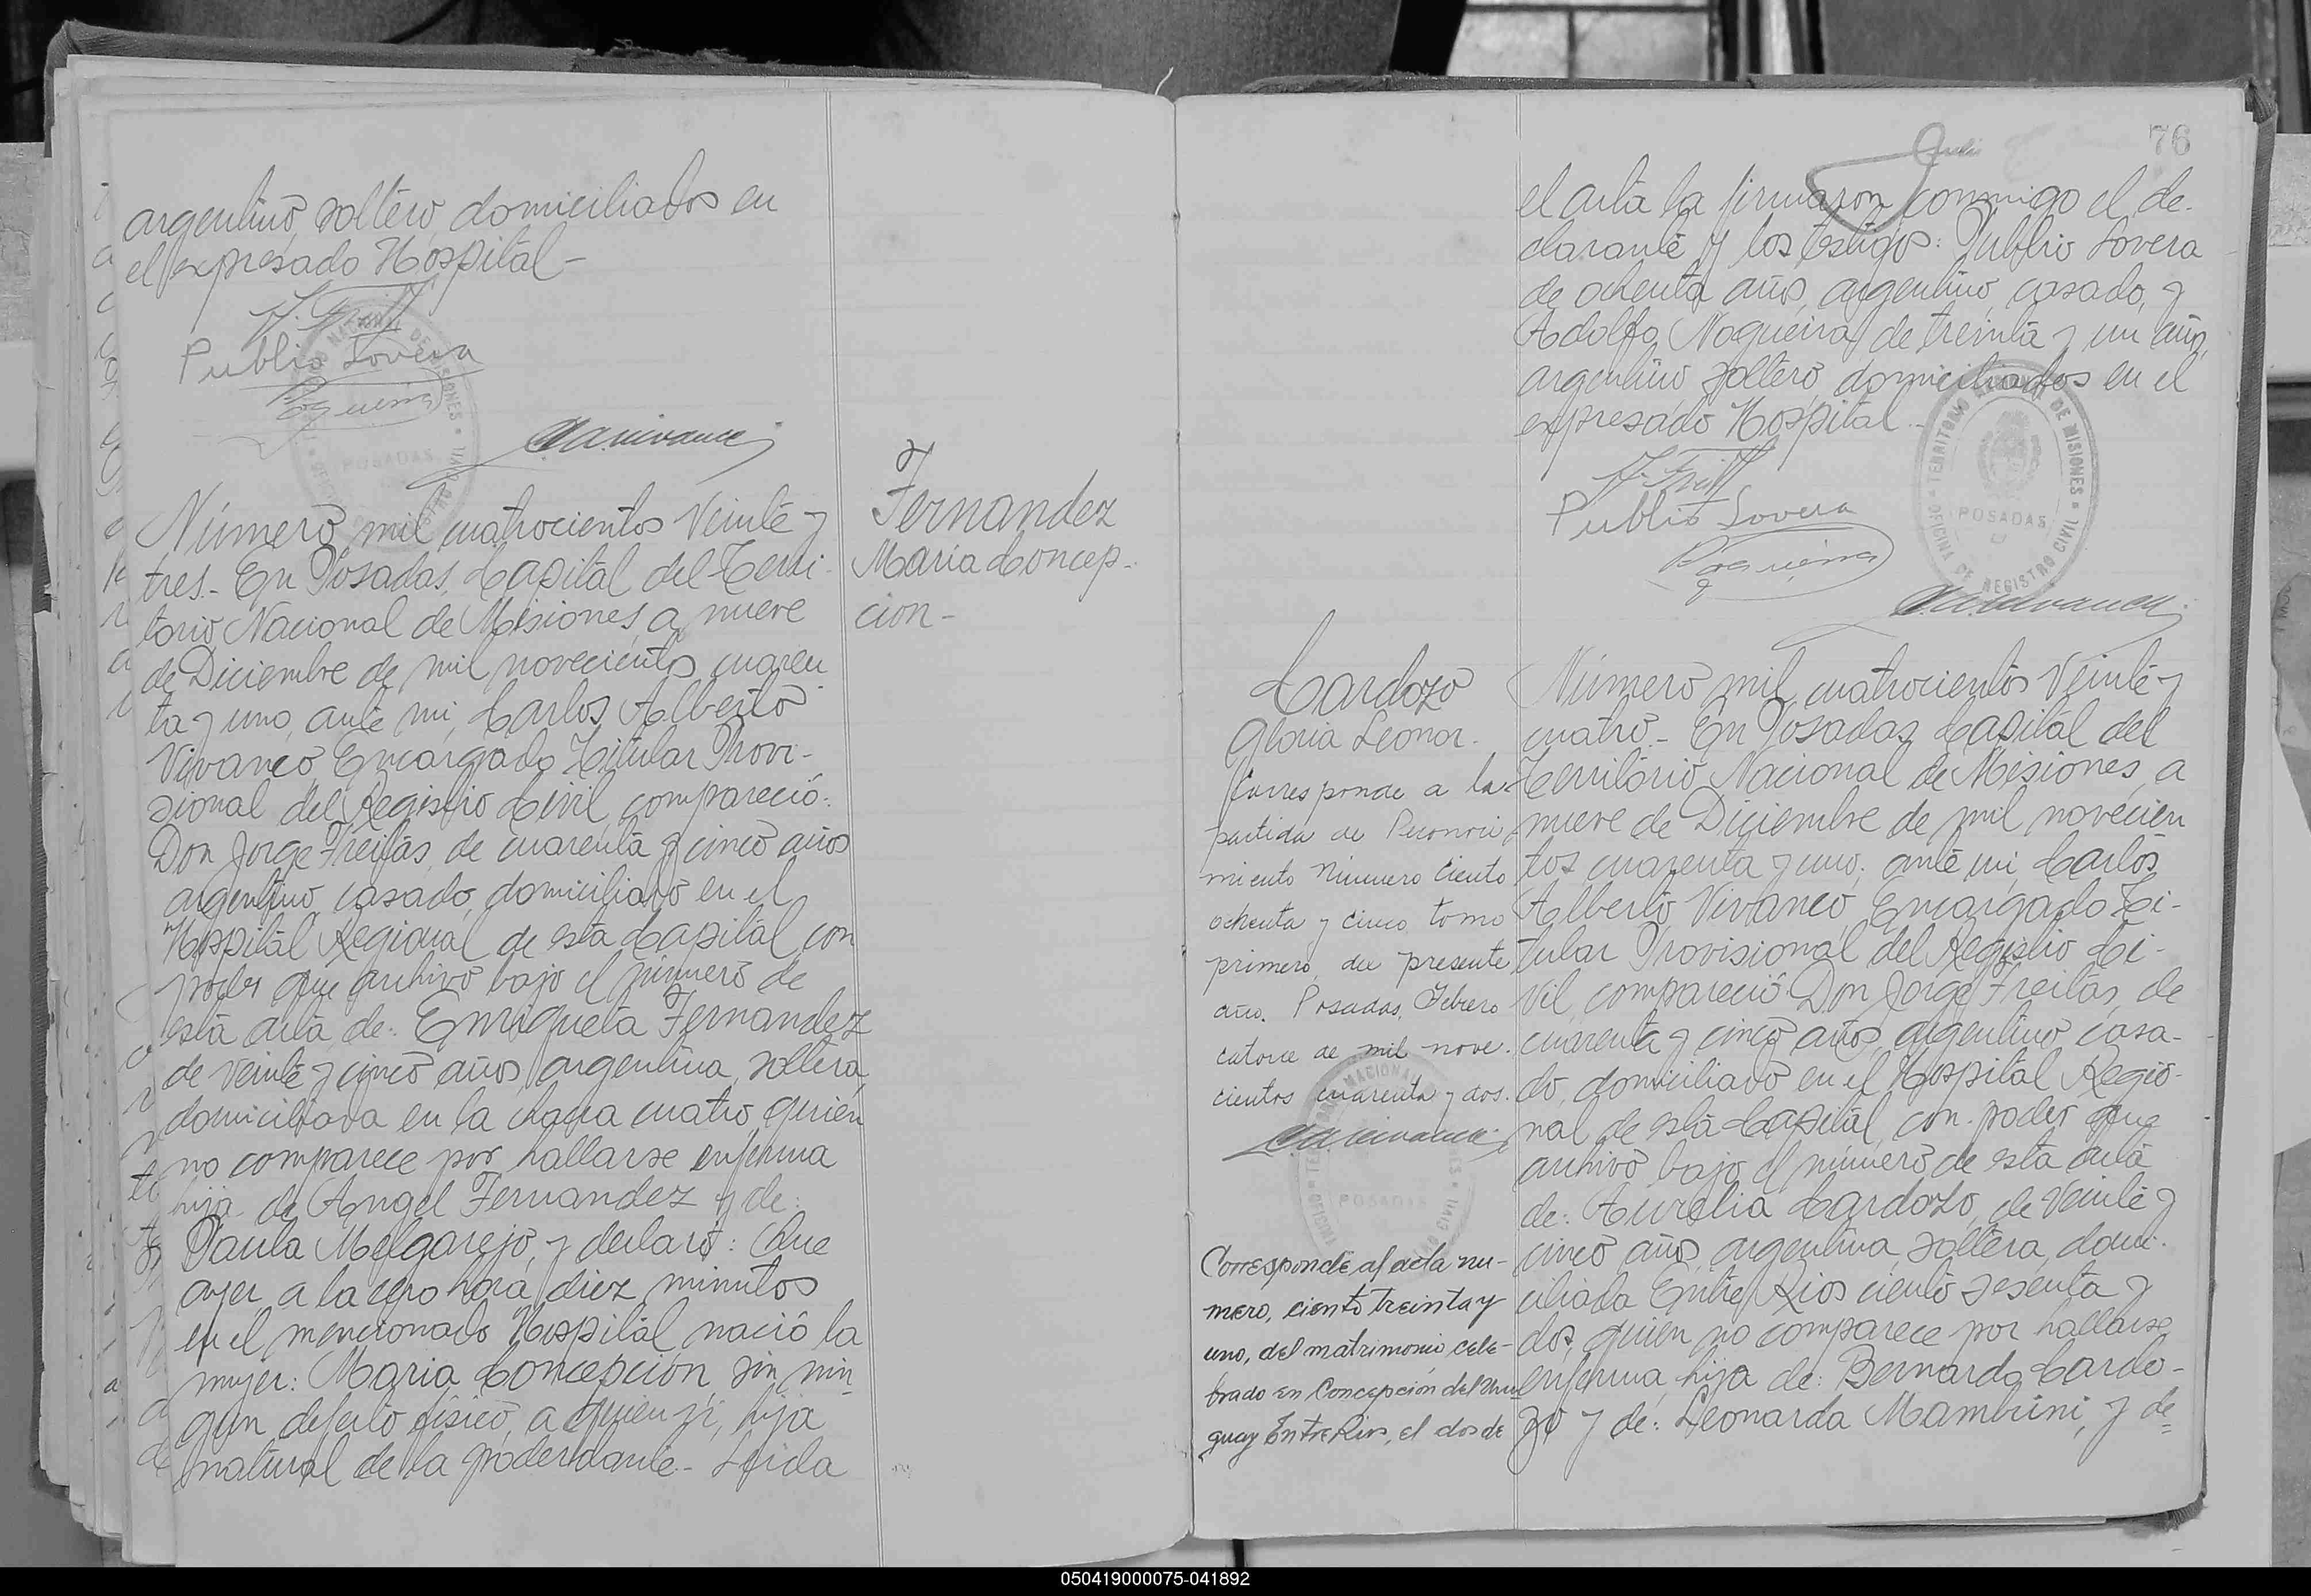 argentino, soltero, domiciliados en
el expresado Hospital-
J. Freitas
Publio Lovera
Nogueira
CAVivanco
Número mil cuatrocientos veinte y
tres.- En Posadas, Capital del Terri-
torio Nacional de Misiones, a nueve
de Diciembre de mil novecientos cuaren
ta y uno, ante mi, Carlos Alberto
Vivanco, Encargado Titular Provi-
sional del Registro Civil, compareció:
Don Jorge Freitas, de cuarenta y cinco años
argentino, casado, domiciliado en el
Hospital Regional de esta Capital, con
poder que archivo bajo el número de
esta acta, de: Enriqueta Fernandez
de veinte y cinco años, argentina, soltera,
domiciliada en la chacra cuatro, quien
no comparece por hallarse enferma
hija de Angel Fernandez y de:
Paula Melgarejo, y declaró: Que
ayer, a la cero hora diez minutos
en el mencionado Hospital, nació la
mujer: Maria Concepcion, sin nin-
gun defecto fisico, a quien vi, hija
natural de la poderdante- Leida
Fernandez
Maria Concep-
cion-
76
el acta la firmaron conmigo el de-
clarante y los testigos: Publio Lovera
de ochenta años, argentino, casado, y
Adolfo Nogueira de treinta y un año,
argentino, soltero, domiciliados en el
expresado Hospital.-
J. Freitas
Publio Lovera
Nogueira
TERRITORIO NACIONAL DE MISIONES
POSADAS
OFICINA DE REGISTRO CIVIL
CAVivanco
Cardozo
Gloria Leonor.
Corresponde a la
partida de Reconoci-
miento Número ciento
ochenta y cinco, tomo
primero, del presente
año. Posadas, Febrero
catorce de mil nove-
cientos cuarenta y dos.
CAVivanco
Corresponde al acta nu-
mero, ciento treinta y
uno, del matrimonio cele-
brado en Concepción del Uru-
guay Entre Rios, el dos de
Número mil cuatrocientos veinte y
cuatro.- En Posadas, Capital del
Territorio Nacional de Misiones, a
nueve de Diciembre de mil novecien
tos cuarenta y uno, ante mi, Carlos
Alberto Vivanco, Encargado Ti-
tular Provisional del Registro Ci-
vil, compareció Don Jorge Freitas, de
cuarenta y cinco años, argentino, casa-
do, domiciliado en el Hospital Regio-
nal de esta Capital, con poder que
archivo bajo el número de esta acta
de: Aurelia Cardozo, de veinte y
cinco años, argentina, soltera, domi-
ciliada Entre Rios ciento sesenta y
dos, quien no comparece por hallarse
enferma, hija de: Bernardo Cardo-
zo y de: Leonarda Mambrini, y de-